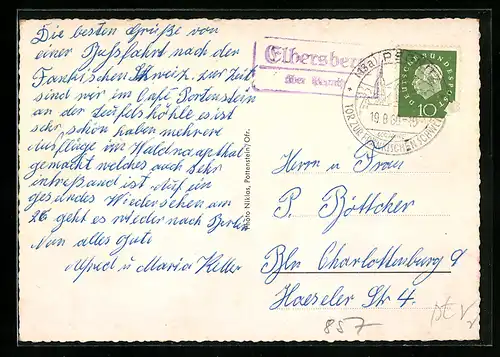 Die besten Grüße von
einer Busfahrt nach der
Fankischen Schweiz. zur Zeit
sind wir im Cafe Portenstein
an der Teufelshöhle es ist
sehr schön haben mehrere
Ausflüge im Waldnaaptal
gemacht welches auch sehr
intreßand ist. Auf ein
gesundes Wiedersehen am
26 geht es wieder nach Berlin
Nun alles Gute
Alfred u Maria Keller
Photo Niklas, Pottenstein/Ofr.
Elbersberg
über
(13a)
19.8.60
TOR ZUR FRÄNKISCHEN SCHWEIZ
DEUTSCHE BUNDESPOST
10
Herrn u Frau
P. Böttcher
Bln Charlottenburg 9
Haeseler Str 4.
857